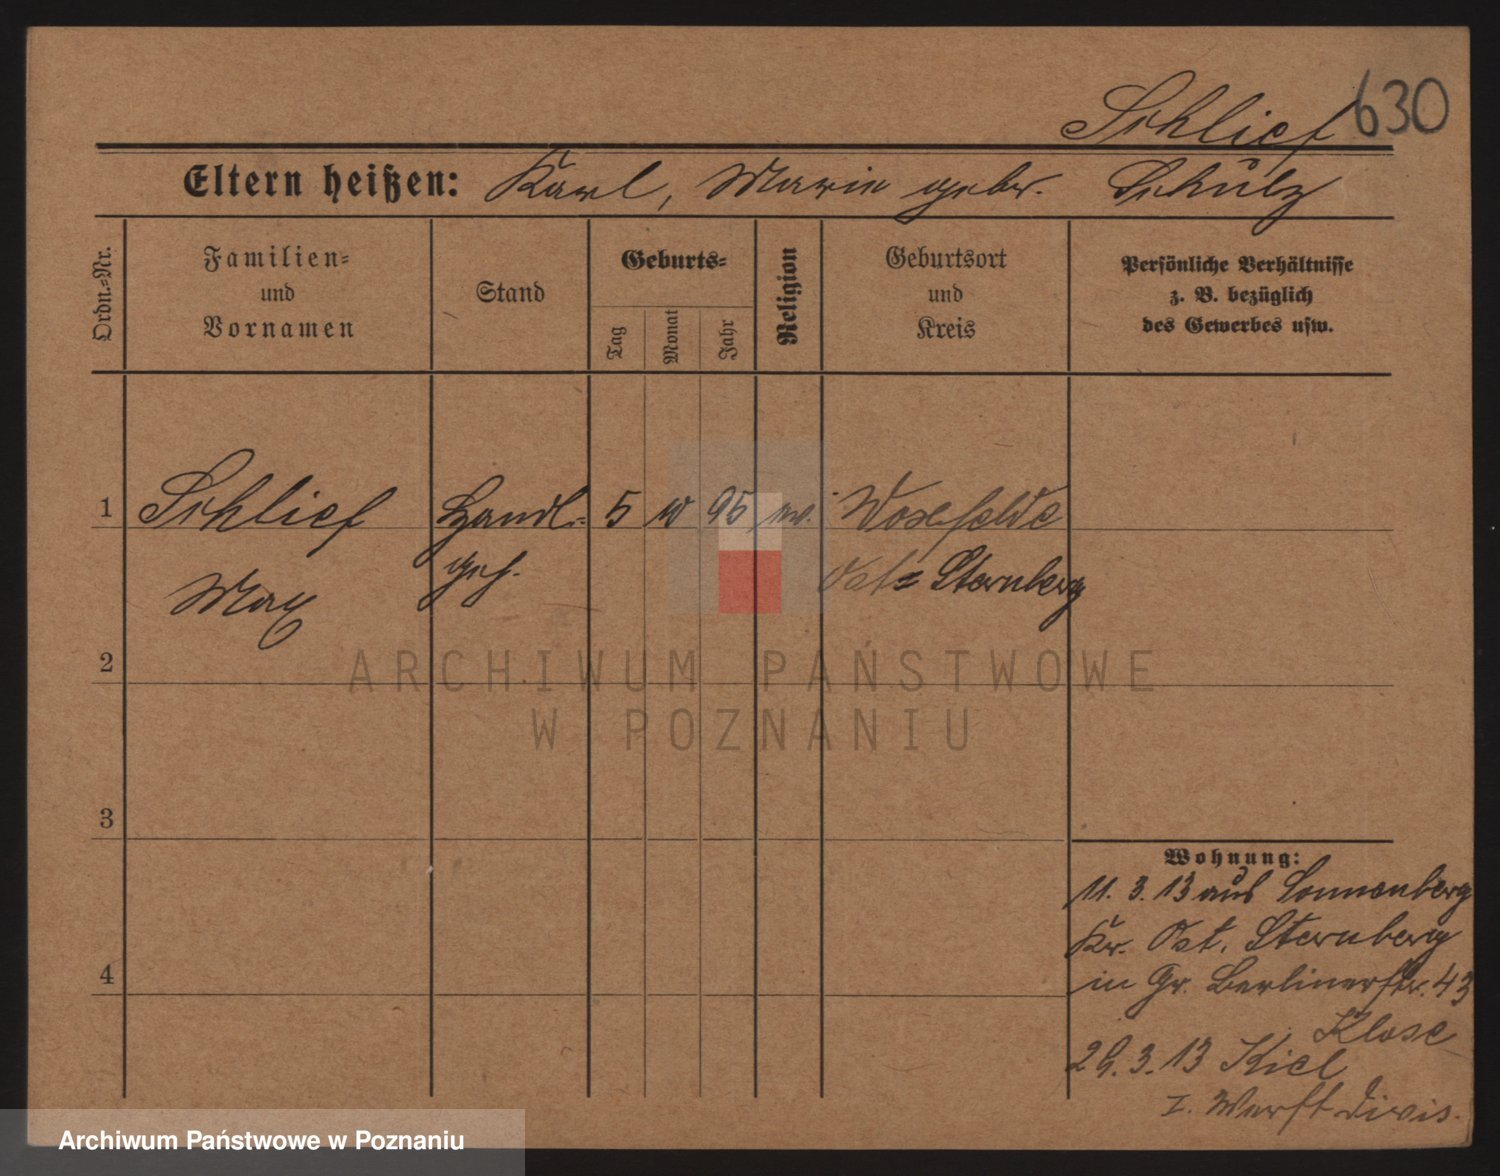 Schlief 630
Eltern heißen: Karl, Marie gebr. Schulz
Ordn.=Nr.
Familien=
und
Vornamen
Stand
Geburts=
Tag
Monat
Jahr
Religion
Geburtsort
und
Kreis
Persönliche Verhältnisse
z. B. bezüglich
des Gewerbes usw.
1 Schlief Handl.= 5 10 95 ev.
Max geh. Ost= Sternberg
2
3
4
Wohnung:
11. 3. 13 aus Sonnenberg
Kr. Ost. Sternberg
in Gr. Berlinerstr. 43
Klose
29. 3. 13 Kiel
I. Werft Divis.
ARCHIWUM PAŃSTWOWE
W POZNANIU
Archiwum Państwowe w Poznaniu